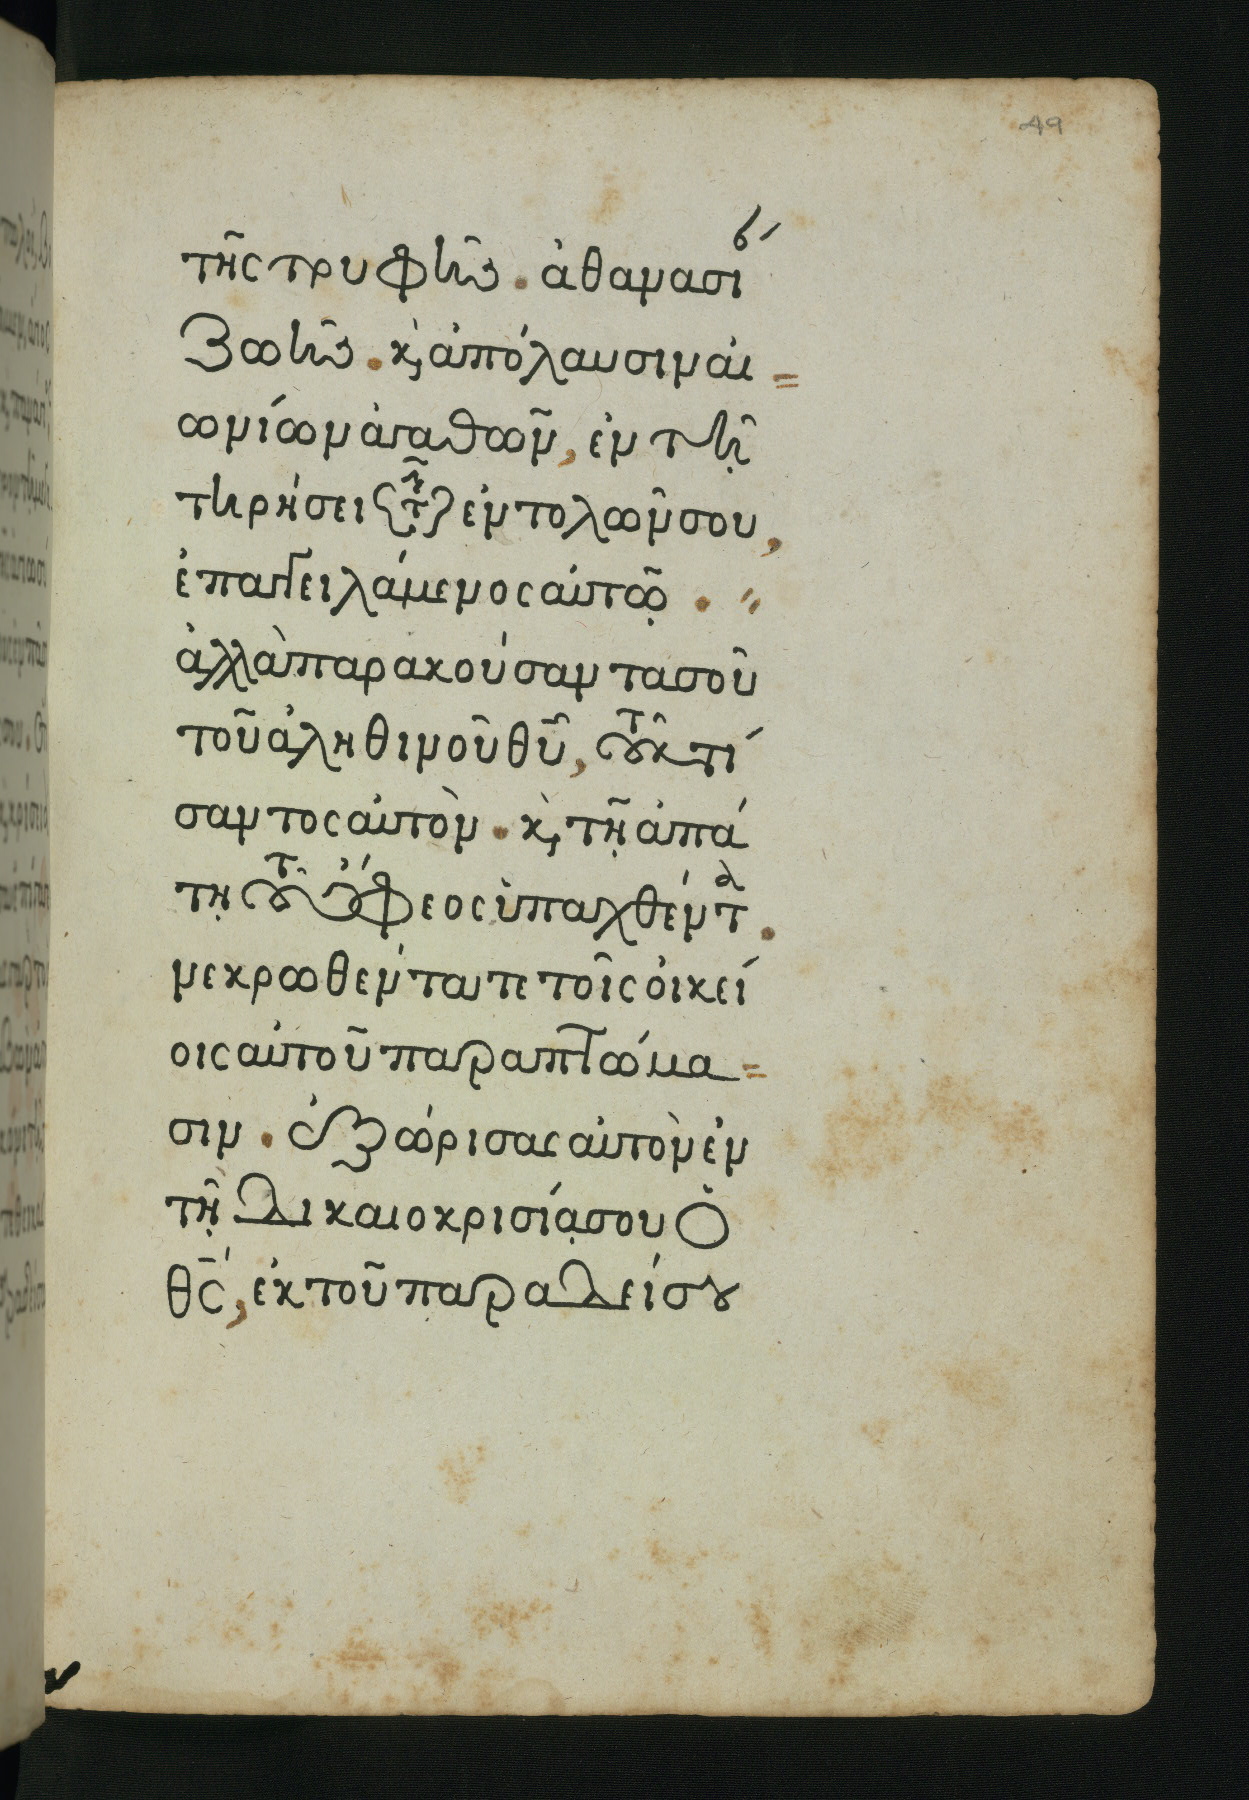 49
β´
τῆς τρυφῆς. ἀθανασί
ζωῆς. κ̀, ἀπόλαυσιν αἰ=
ωνίων ἀγαθῶν, ἐν τῆ̣
τηρήσει τῆ̣ ἐντολῶν σου,
ἐπαγγειλάμενος αὐτῶ̣.〃
ἀλλὰ παρακούσαντα σοῦ
τοῦ ἀληθινοῦ θῦ, τοῦ κτί
σαντος αὐτὸν. κ̀, τῆ̣ ἀπά
τη̣ τοῦ ὄφεος ὑπαχθέντα.
νεκρωθέντα τε τοῖς οἰκεί
οις αὐτοῦ παραπτώμα=
σιν. ἐξώρισας αὐτὸν ἐν
τῆ̣ δικαιοκρισία̣ σου ὁ
θς̄, ἐκ τοῦ παραδείσου